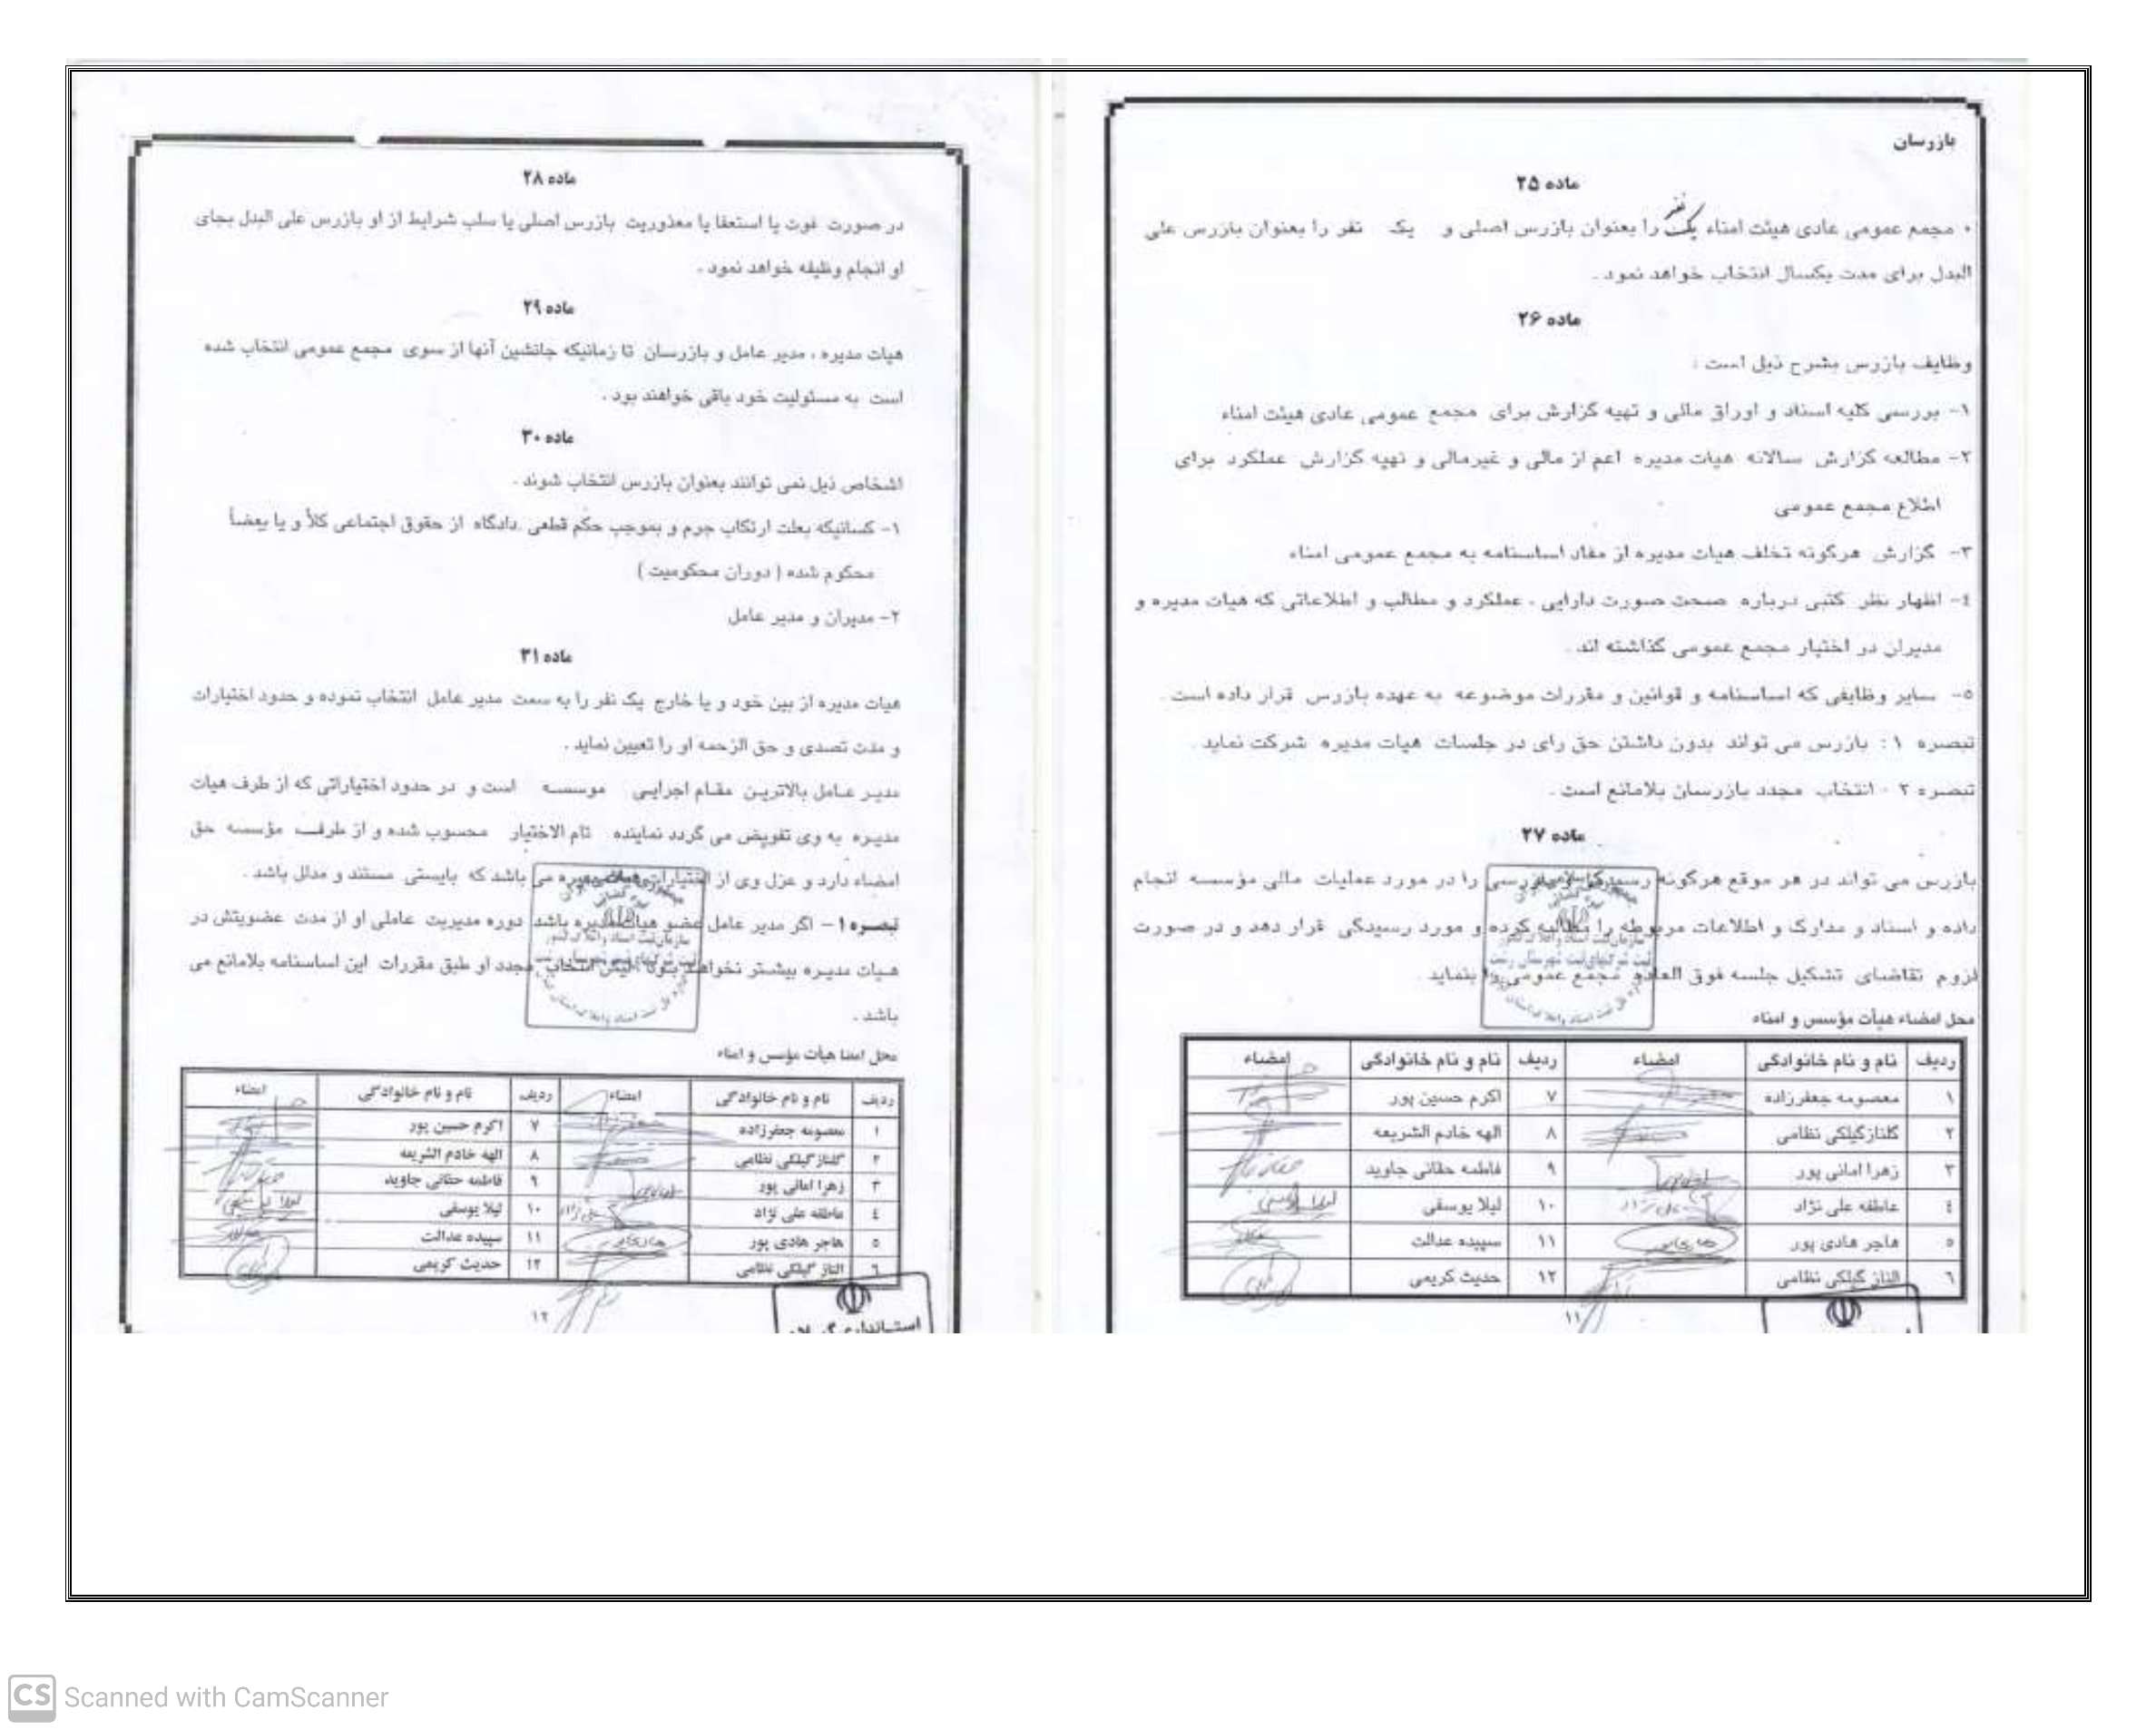 بازرسان
ماده ۲۵
مجمع عمومی عادی هیئت امناء یک نفر را بعنوان بازرس اصلی و یک نفر را بعنوان بازرس علی
البدل برای مدت یکسال انتخاب خواهد نمود .
ماده ۲۶
وظایف بازرس بشرح ذیل است :
۱- بررسی کلیه اسناد و اوراق مالی و تهیه گزارش برای مجمع عمومی عادی هیئت امناء
۲- مطالعه گزارش سالانه هیات مدیره اعم از مالی و غیرمالی و تهیه گزارش عملکرد برای
اطلاع مجمع عمومی
۳- گزارش هرگونه تخلف هیات مدیره از مفاد اساسنامه به مجمع عمومی امناء
٤- اظهار نظر کتبی درباره صحت صورت دارایی ، عملکرد و مطالب و اطلاعاتی که هیات مدیره و
مدیران در اختیار مجمع عمومی گذاشته اند .
٥- سایر وظایفی که اساسنامه و قوانین و مقررات موضوعه به عهده بازرس قرار داده است .
تبصره ۱ : بازرس می تواند بدون داشتن حق رای در جلسات هیات مدیره شرکت نماید .
تبصره ۲ - انتخاب مجدد بازرسان بلامانع است .
ماده ۲۷
بازرس می تواند در هر موقع هرگونه رسیدگی و بازرسی را در مورد عملیات مالی مؤسسه انجام
داده و اسناد و مدارک و اطلاعات مربوطه را مطالبه کرده و مورد رسیدگی قرار دهد و در صورت
لزوم تقاضای تشکیل جلسه فوق العاده مجمع عمومی را بنماید .
سازمان ثبت اسناد و املاک کشور
محل امضاء هیأت مؤسس و امناء
ردیف نام و نام خانوادگی امضاء ردیف نام و نام خانوادگی امضاء
۱ معصومه جعفرزاده ۷ اکرم حسین پور
۲ گلنازگیلکی نظامی ۸ الهه خادم الشریعه
۳ زهرا امانی پور ۹ فاطمه حقانی جاوید
٤ عاطفه علی نژاد ۱۰ لیلا یوسفی
٥ هاجر هادی پور ۱۱ سپیده عدالت
٦ الناز گیلکی نظامی ۱۲ حدیث کریمی
۱۱
ماده ۲۸
در صورت فوت یا استعفا یا معذوریت بازرس اصلی یا سلب شرایط از او بازرس علی البدل بجای
او انجام وظیفه خواهد نمود .
ماده ۲۹
هیات مدیره ، مدیر عامل و بازرسان تا زمانیکه جانشین آنها از سوی مجمع عمومی انتخاب شده
است به مسئولیت خود باقی خواهند بود .
ماده ۳۰
اشخاص ذیل نمی توانند بعنوان بازرس انتخاب شوند .
۱- کسانیکه بعلت ارتکاب جرم و بموجب حکم قطعی دادگاه از حقوق اجتماعی کلاً و یا بعضاً
محکوم شده ( دوران محکومیت )
۲- مدیران و مدیر عامل
ماده ۳۱
هیات مدیره از بین خود و یا خارج یک نفر را به سمت مدیر عامل انتخاب نموده و حدود اختیارات
و مدت تصدی و حق الزحمه او را تعیین نماید .
مدیر عامل بالاترین مقام اجرایی موسسه است و در حدود اختیاراتی که از طرف هیات
مدیره به وی تفویض می گردد نماینده تام الاختیار محسوب شده و از طرف مؤسسه حق
امضاء دارد و عزل وی از اختیارات هیات مدیره می باشد که بایستی مستند و مدلل باشد .
تبصره ۱ – اگر مدیر عامل عضو هیات مدیره باشد دوره مدیریت عاملی او از مدت عضویتش در
هیات مدیره بیشتر نخواهد بود لیکن انتخاب مجدد او طبق مقررات این اساسنامه بلامانع می
باشد .
سازمان ثبت اسناد و املاک کشور
محل امضا هیأت مؤسس و امناء
ردیف نام و نام خانوادگی امضاء ردیف نام و نام خانوادگی امضاء
۱ معصومه جعفرزاده ۷ اکرم حسین پور
۲ گلناز گیلکی نظامی ۸ الهه خادم الشریعه
۳ زهرا امانی پور ۹ فاطمه حقانی جاوید
٤ عاطفه علی نژاد ۱۰ لیلا یوسفی
٥ هاجر هادی پور ۱۱ سپیده عدالت
٦ الناز گیلکی نظامی ۱۲ حدیث کریمی
۱۲
استانداری گیلان
CS Scanned with CamScanner